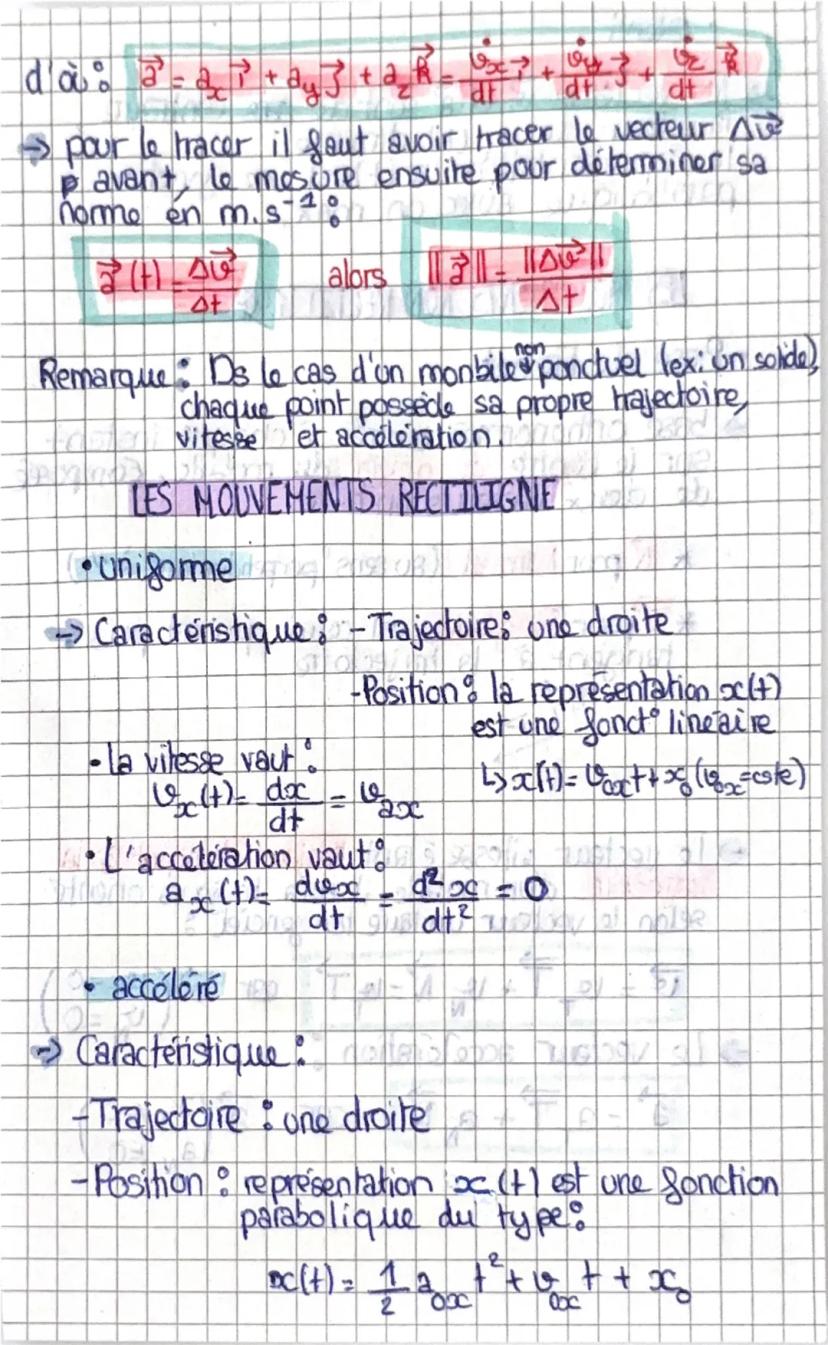 d'où : a⃗ = aₓ i⃗ + a_y j⃗ + a_z k⃗ = v̇ₓ/dt i⃗ + v̇_y/dt j⃗ + v̇_z/dt k⃗
→ pour le tracer il faut avoir tracer le vecteur Δv⃗
avant, le mesure ensuite pour déterminer sa
norme en m.s⁻¹ :
a⃗(t) = Δv⃗/Δt alors ||a⃗|| = ||Δv⃗||/Δt
Remarque : Ds le cas d'un monbile non ponctuel (ex: un solide),
chaque point possède sa propre trajectoire,
vitesse et accélération.
LES MOUVEMENTS RECTILIGNE
• uniforme
→ Caractéristique : - Trajectoire : une droite
- Position : la représentation x(t)
est une fonct° linéaire
↳ x(t) = v₀ₓt + x₀ (v₀ₓ = cste)
• La vitesse vaut :
vₓ(t) = dx/dt = v₀ₓ
• L'accélération vaut :
aₓ(t) = dvₓ/dt = d²x/dt² = 0
• accéléré
→ Caractéristique :
- Trajectoire : une droite
- Position : représentation x(t) est une fonction
parabolique du type :
x(t) = 1/2 a₀ₓ t² + v₀ₓ t + x₀